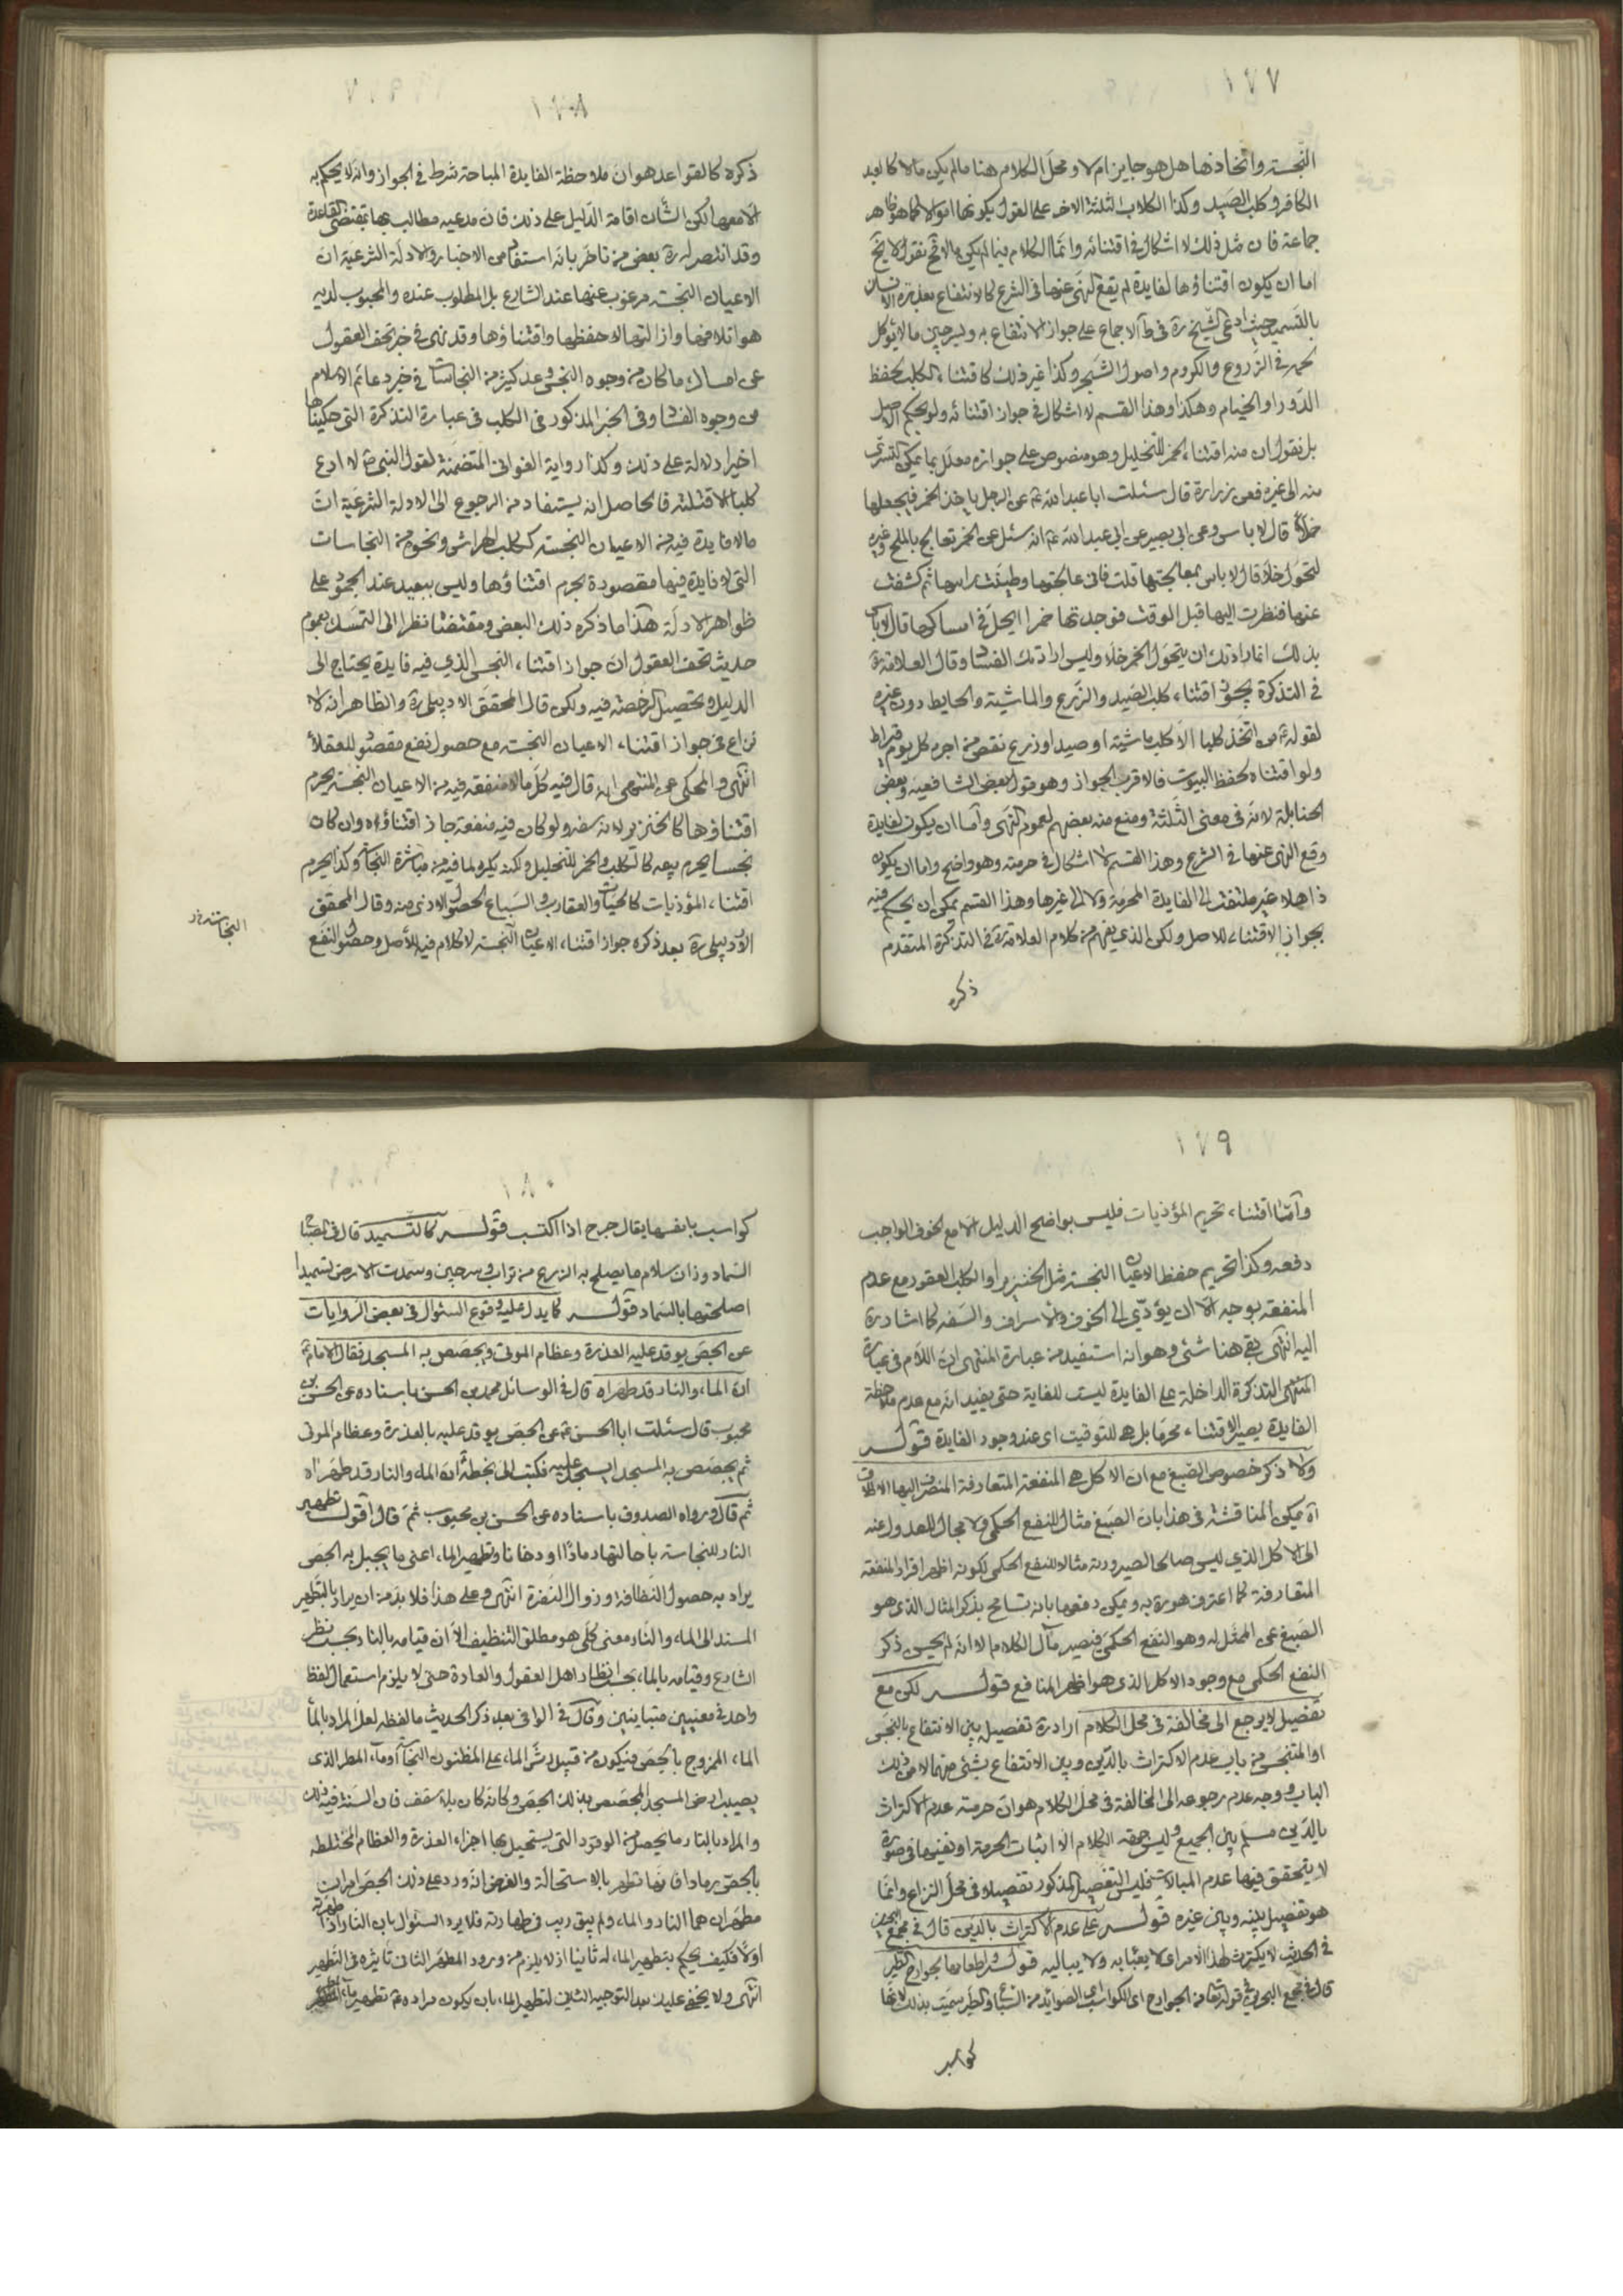 ١٧٧
النجسة واتخاذها هل هو جايز ام لا ومحل الكلام هنا ما لم يكن مالا كالعبد
الكافر وكلب الصيد وكذا الكلاب الثلثة الاخر على القول بكونها اموالا كما هو ظاهر
جماعة فان مثل ذلك لا اشكال في اقتنائه وانما الكلام فيما لم يكن مالا فح نقول لا يخ
اما ان يكون اقتناؤها لفايدة لم يقع النهى عنها في الشرع كالانتفاع بعذرة الانسان
بالتسميد حيث ادعى الشيخ ره في ط الاجماع على جواز الانتفاع به وبسرجين ما لا يؤكل
لحمه في الزروع والكروم واصول الشجر وكذا غير ذلك كاقتناء الكلب لحفظ
الدور او الخيام وهكذا وهذا القسم لا اشكال في جواز اقتنائه ولو بحكم الاصل
بل نقول ان منه اقتناء الخمر للتخليل وهو منصوص على جوازه معلل بما يمكن التسرى
منه الى غيره فعن زرارة قال سئلت ابا عبد الله ع عن الرجل ياخذ الخمر فيجعلها
خلا قال لا باس وعن ابى بصير عن ابى عبد الله ع انه سئل عن الخمر تعالج بالملح وغيره
لتحول خلا قال لا باس بمعالجتها قلت فانى عالجتها وطينت راسها ثم كشفت
عنها فنظرت اليها قبل الوقت فوجدتها خمرا ايحل لي امساكها قال لا باس
بذلك انما ارادتك ان يتحول الخمر خلا وليس ارادتك الفساد وقال العلامة ره
في التذكرة يجوز اقتناء كلب الصيد والزرع والماشية والحايط دون غيره
لقوله ع من اتخذ كلبا الا كلب ماشية او صيد او زرع نقص من اجره كل يوم قيراط
ولو اقتناه لحفظ البيوت فالاقرب الجواز وهو قول بعض الشافعية وبعض
الحنابلة لانه في معنى الثلثة ومنع منه بعضهم لعموم النهى واما ان يكون لفايدة
وقع النهى عنها في الشرع وهذا القسم لا اشكال في حرمته وهو واضح واما ان يكون
ذاهلا غير ملتفت الى الفايدة المحرمة ولا الى غيرها وهذا القسم يمكن ان يحكم فيه
بجواز الاقتناء للاصل ولكن الذي يفهم من كلام العلامة ره في التذكرة المتقدم
ذكره
١٧٨
ذكره كالقواعد هو ان ملاحظة الفايدة المباحة شرط في الجواز وانه لا يحكم به
الا معها لكن الشأن اقامة الدليل على ذلك فان مدعيه مطالب بها بمقتضى القاعدة
وقد انتصر له ره بعض من تاخر بانه استفاد من الاخبار والادلة الشرعية ان
الاعيان النجسة مرغوب عنها عند الشارع بل المطلوب عنده والمحبوب لديه
هو اتلافها وازالتها لا حفظها واقتناؤها وقد نهى في خبر تحف العقول
عن امساك ما كان من وجوه النجس وعد كثير من النجاسات في خبر دعائم الاسلام
من وجوه الفساد وفى الخبر المذكور في الكلب في عبارة التذكرة التي حكيناها
اخيرا دلالة على ذلك وكذا رواية الغوالى المتضمنة لقول النبى ص لا ادع
كلبا الا قتلته فالحاصل انه يستفاد من الرجوع الى الادلة الشرعية ان
ما لا فايدة فيه من الاعيان النجسة ككلب الهراش ونحوه من النجاسات
التي لا فايدة فيها مقصودة يحرم اقتناؤها وليس ببعيد عند الجمود على
ظواهر الادلة هذا ما ذكره ذلك البعض ومقتضا نظرا الى التمسك بعموم
حديث تحف العقول ان جواز اقتناء النجس الذي فيه فايدة يحتاج الى
الدليل وتحصيل الرخصة فيه ولكن قال المحقق الاردبيلى ره والظاهر انه لا
نزاع في جواز اقتناء الاعيان النجسة مع حصول نفع مقصود للعقلاء
انتهى والمحكى عن المنتهى انه قال فيه كل ما لا منفعة فيه من الاعيان النجسة يحرم
اقتناؤها كالخنزير لانه سفه ولو كان فيه منفعة جاز اقتناؤه وان كان
نجسا يحرم بيعه كالكلب والخمر للتخليل ولكنه يكره لما فيه من مباشرة النجاسة وكذا يحرم
اقتناء المؤذيات كالحيات والعقارب والسباع لحصول الاذى منه وقال المحقق
الاردبيلى ره بعد ذكره جواز اقتناء الاعيان النجسة لا كلام فيه للأصل وحصول النفع
١٧٩
وامّا اقتناء تحريم المؤذيات فليس بواضح الدليل الا مع الخوف الواجب
دفعه وكذا تحريم حفظ الاعيان النجسة مثل الخنزير او الكلب العقور مع عدم
المنفعة بوجه الا ان يؤدّي الى الخوف والاسراف والسفه كما اشار ره
اليه انتهى بقى هنا شئ وهو انه استفيد من عبارة المنتهى ان اللام في عبارة
المنتهى التذكرة الداخلة على الفايدة ليست للغاية حتى يفيد انه مع عدم ملاحظة
الفايدة يصير الاقتناء محرما بل هى للتوقيت اى عند وجود الفايدة قوله
ولا ذكر خصوص الصبغ مع ان الاكل هى المنفعة المتعارفة المنصرف اليها الاطلاق
اه يمكن المناقشة في هذا بان الصبغ مثال للنفع الحكمى ولا مجال للعدول عنه
الى الاكل الذي ليس صالحا لصيرورته مثالا للنفع الحكمى لكونه اظهر افراد المنفعة
المتعارفة كما اعترف هو ره به ويمكن دفعها بانه تسامح بذكر المثال الذي هو
الصبغ عن الممثل له وهو النفع الحكمى فيصير مآل الكلام الا انه لم يحسن ذكر
النفع الحكمى مع وجود الاكل الذي هو اظهر المنافع قوله لكن مع
تفصيل لا يرجع الى مخالفة في محل الكلام اراد ره تفصيل بين الانتفاع بالنجس
او المتنجس من باب عدم الاكتراث بالدين وبين الانتفاع بشئ منهما لا من ذلك
الباب ووجه عدم رجوعه الى المخالفة في محل الكلام هو ان حرمة عدم الاكتراث
بالدين مسلم بين الجميع وليس جهة الكلام الا اثبات الحرمة او نفيها في صورة
لا يتحقق فيها عدم المبالات فليس التفصيل المذكور تفصيلا في محل النزاع وانما
هو تفصيل بينه وبين غيره قوله على عدم الاكتراث بالدين قال في مجمع البحرين
في الحديث لا يكترث لهذا الامر اى لا يعبا به ولا يباليه قوله واطعامها لجوارح الطير
قال في مجمع البحرين في قوله تعا من الجوارح اى الكواسب اى الصوائد من السباع والطير سميت بذلك لانها
كواسب
١٨٠
كواسب بانفسها يقال جرح اذا اكتسب قوله كالتسميد قال في المصباح
السماد وزان سلام ما يصلح به الزرع من تراب وسرجين وسمدت الارض تسميدا
اصلحتها بالسماد قوله كما يدل عليه وقوع السئوال في بعض الروايات
عن الجص يوقد عليه العذرة وعظام الموتى ويجصص به المسجد فقال الامام ع
ان الماء والنار قد طهراه قال في الوسائل محمد بن الحسن باسناده عن الحسن بن
محبوب قال سئلت ابا الحسن ع عن الجص يوقد عليه بالعذرة وعظام الموتى
ثم يجصص به المسجد ايسجد عليه فكتب الى بخطه ان الماء والنار قد طهراه
ثم قال ورواه الصدوق باسناده عن الحسن بن محبوب ثم قال اقول تطهير
النار للنجاسة باحالتها رمادًا او دخانا وتطهير الماء اعنى ما يجبل به الجص
يراد به حصول النظافة وزوال النفرة انتهى وعلى هذا فلا بد من ان يراد بالتطهير
المسند الى الماء والنار معنى كلى هو مطلق التنظيف الا ان قيامه بالنار بحسب نظر
الشارع وقيامه بالماء بحسب انظار اهل العقول والعادة حتى لا يلزم استعمال لفظ
واحد في معنيين متباينين وقال في الوافى بعد ذكر الحديث ما لفظه لعل المراد بالماء
الماء الممزوج بالجص فيكون من قبيل رش الماء على المظنون النجاسة او ماء المطر الذى
يصيب ارض المسجد المجصص بذلك الجص وكانه كان بلا سقف فان السنة فيه ذلك
والمراد بالنار ما يحصل من الوقود التي يستحيل بها اجزاء العذرة والعظام المختلطة
بالجص رمادا فانها تطهر بالاستحالة والغرض انه ورد على ذلك الجص امران
مطهران هما النار والماء ولم يبق ريب في طهارته فلا يرد السئوال بان النار اذا طهرته
اولا فكيف يحكم بتطهير الماء له ثانيا اذ لا يلزم من ورود المطهر الثانى تاثيره في التطهير
انتهى ولا يخفى عليك بعد التوجيه الثانى لتطهير الماء بان يكون مراده ع تطهير ماء المطر